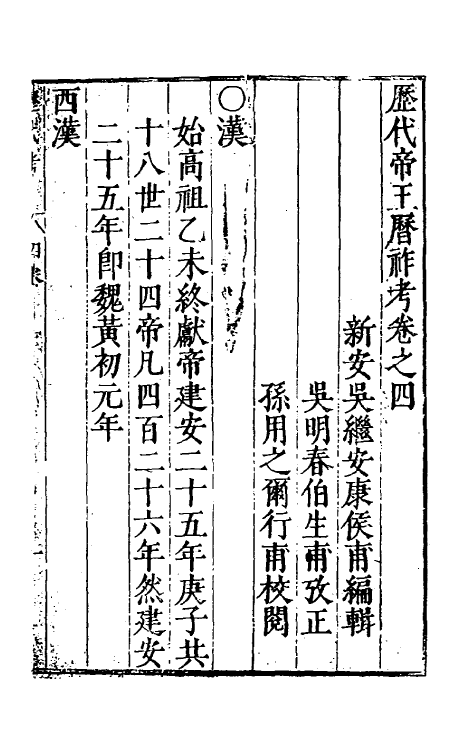 歷代帝王曆祚考卷之四
新安吳繼安康侯甫編輯
吳明春伯生甫攷正
孫用之爾行甫校閱
○漢
始高祖乙未終獻帝建安二十五年庚子共
十八世二十四帝凡四百二十六年然建安
二十五年即魏黃初元年
西漢